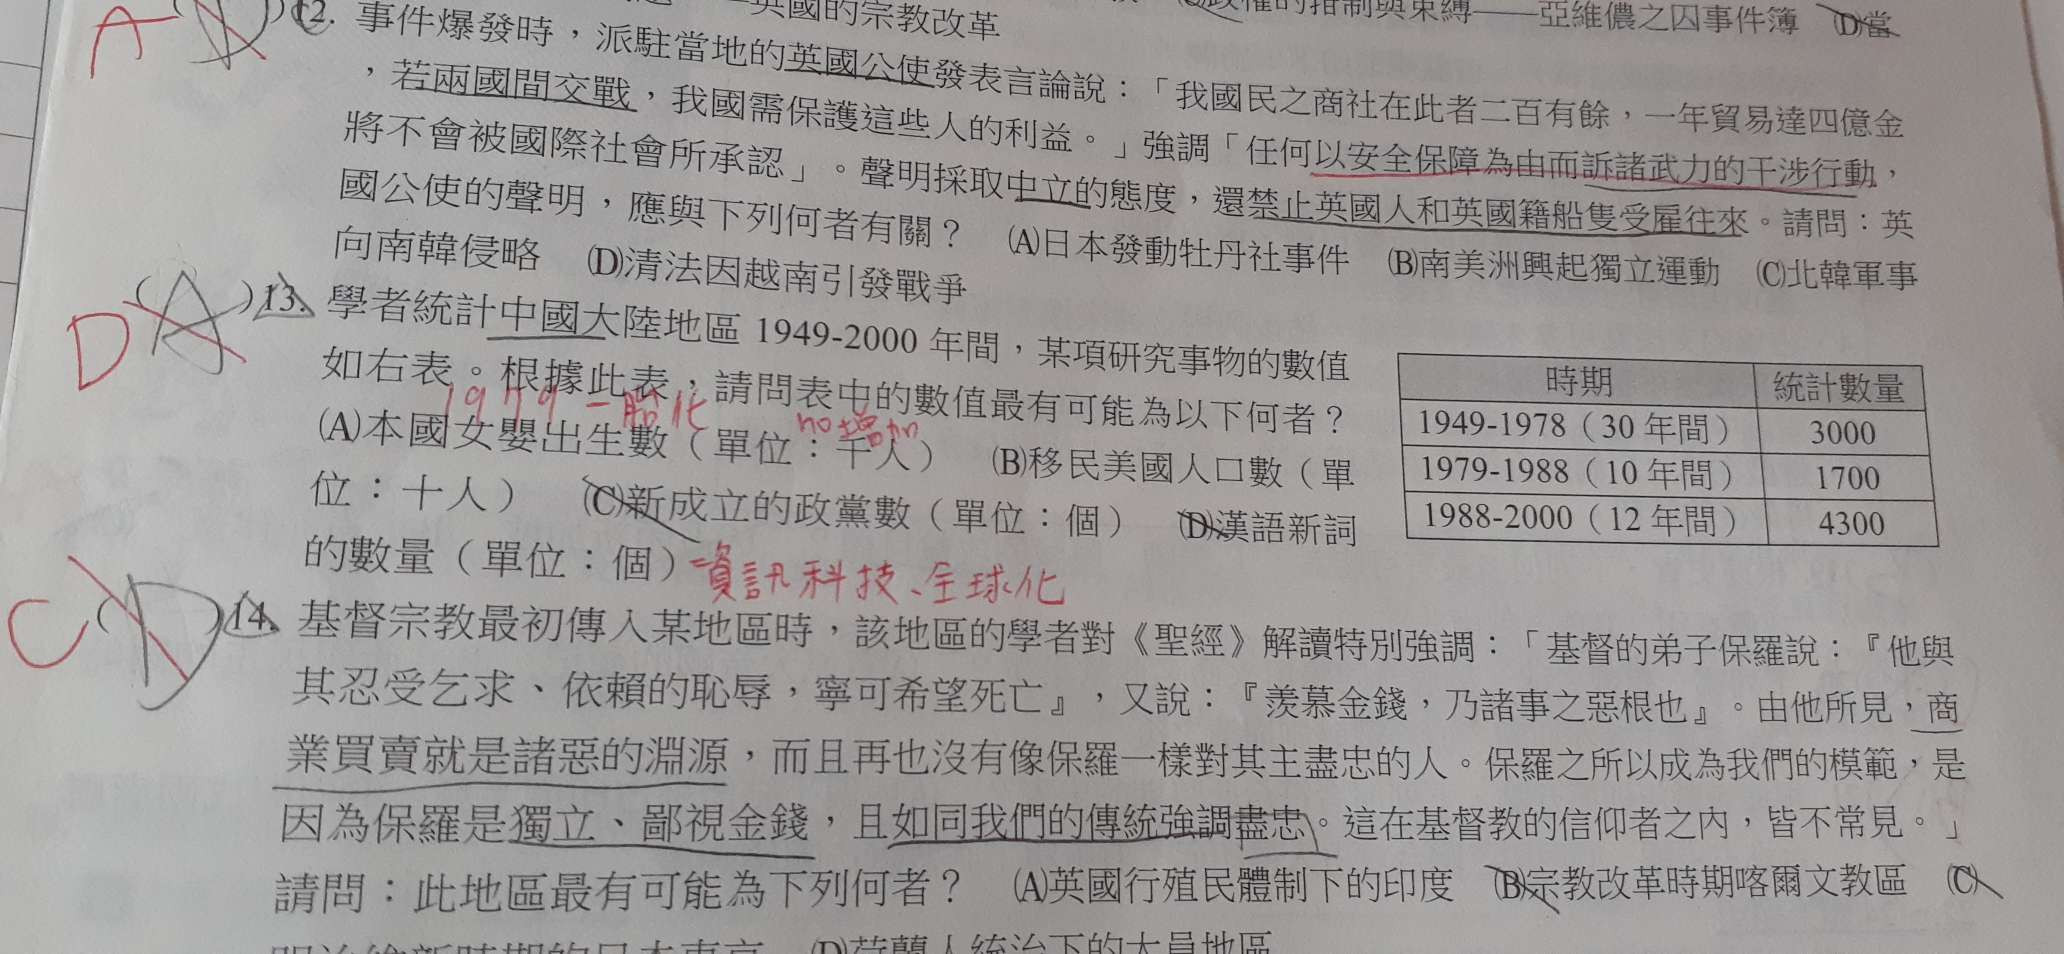 英國的宗教改革 政權的箝制與束縛——亞維儂之囚事件簿 (D)當
A
12. 事件爆發時，派駐當地的英國公使發表言論說：「我國民之商社在此者二百有餘，一年貿易達四億金
，若兩國間交戰，我國需保護這些人的利益。」強調「任何以安全保障為由而訴諸武力的干涉行動，
將不會被國際社會所承認」。聲明採取中立的態度，還禁止英國人和英國籍船隻受雇往來。請問：英
國公使的聲明，應與下列何者有關？ (A)日本發動牡丹社事件 (B)南美洲興起獨立運動 (C)北韓軍事
向南韓侵略 (D)清法因越南引發戰爭
D (A) 13. 學者統計中國大陸地區 1949-2000 年間，某項研究事物的數值
如右表。根據此表，請問表中的數值最有可能為以下何者？
1979 一胎化 no增加
(A)本國女嬰出生數（單位：千人） (B)移民美國人口數（單
位：十人） (C)新成立的政黨數（單位：個） (D)漢語新詞
的數量（單位：個） 資訊科技、全球化
時期 統計數量
1949-1978（30 年間） 3000
1979-1988（10 年間） 1700
1988-2000（12 年間） 4300
C (D) 14. 基督宗教最初傳入某地區時，該地區的學者對《聖經》解讀特別強調：「基督的弟子保羅說：『他與
其忍受乞求、依賴的恥辱，寧可希望死亡』，又說：『羨慕金錢，乃諸事之惡根也』。由他所見，商
業買賣就是諸惡的淵源，而且再也沒有像保羅一樣對其主盡忠的人。保羅之所以成為我們的模範，是
因為保羅是獨立、鄙視金錢，且如同我們的傳統強調盡忠。這在基督教的信仰者之內，皆不常見。」
請問：此地區最有可能為下列何者？ (A)英國行殖民體制下的印度 (B)宗教改革時期喀爾文教區 (C)
明治維新時期的日本東京 (D)荷蘭人統治下的大員地區